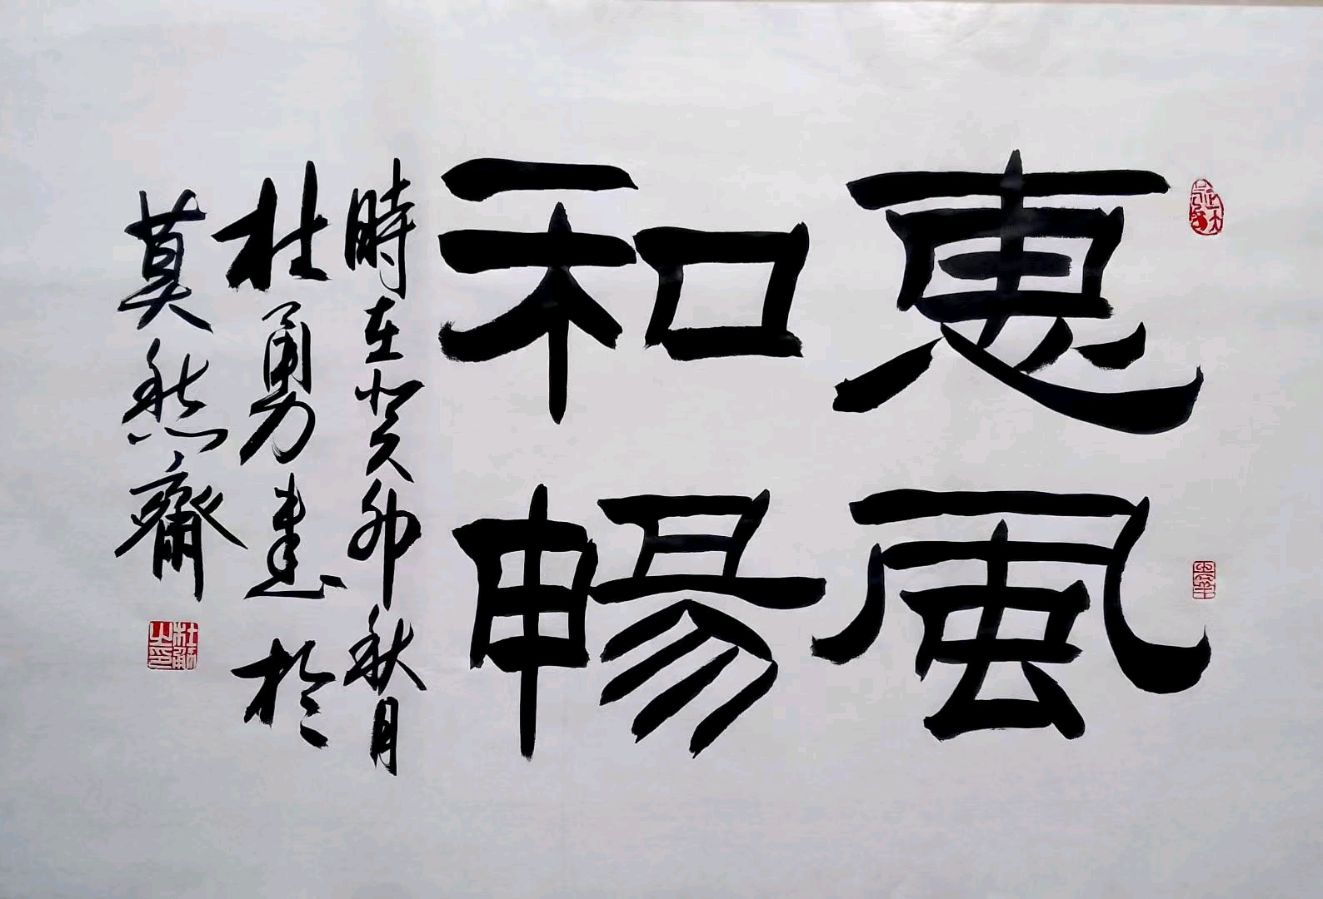 惠風
和暢
時在癸卯秋月
杜勇書於
莫愁齋
杜勇之印